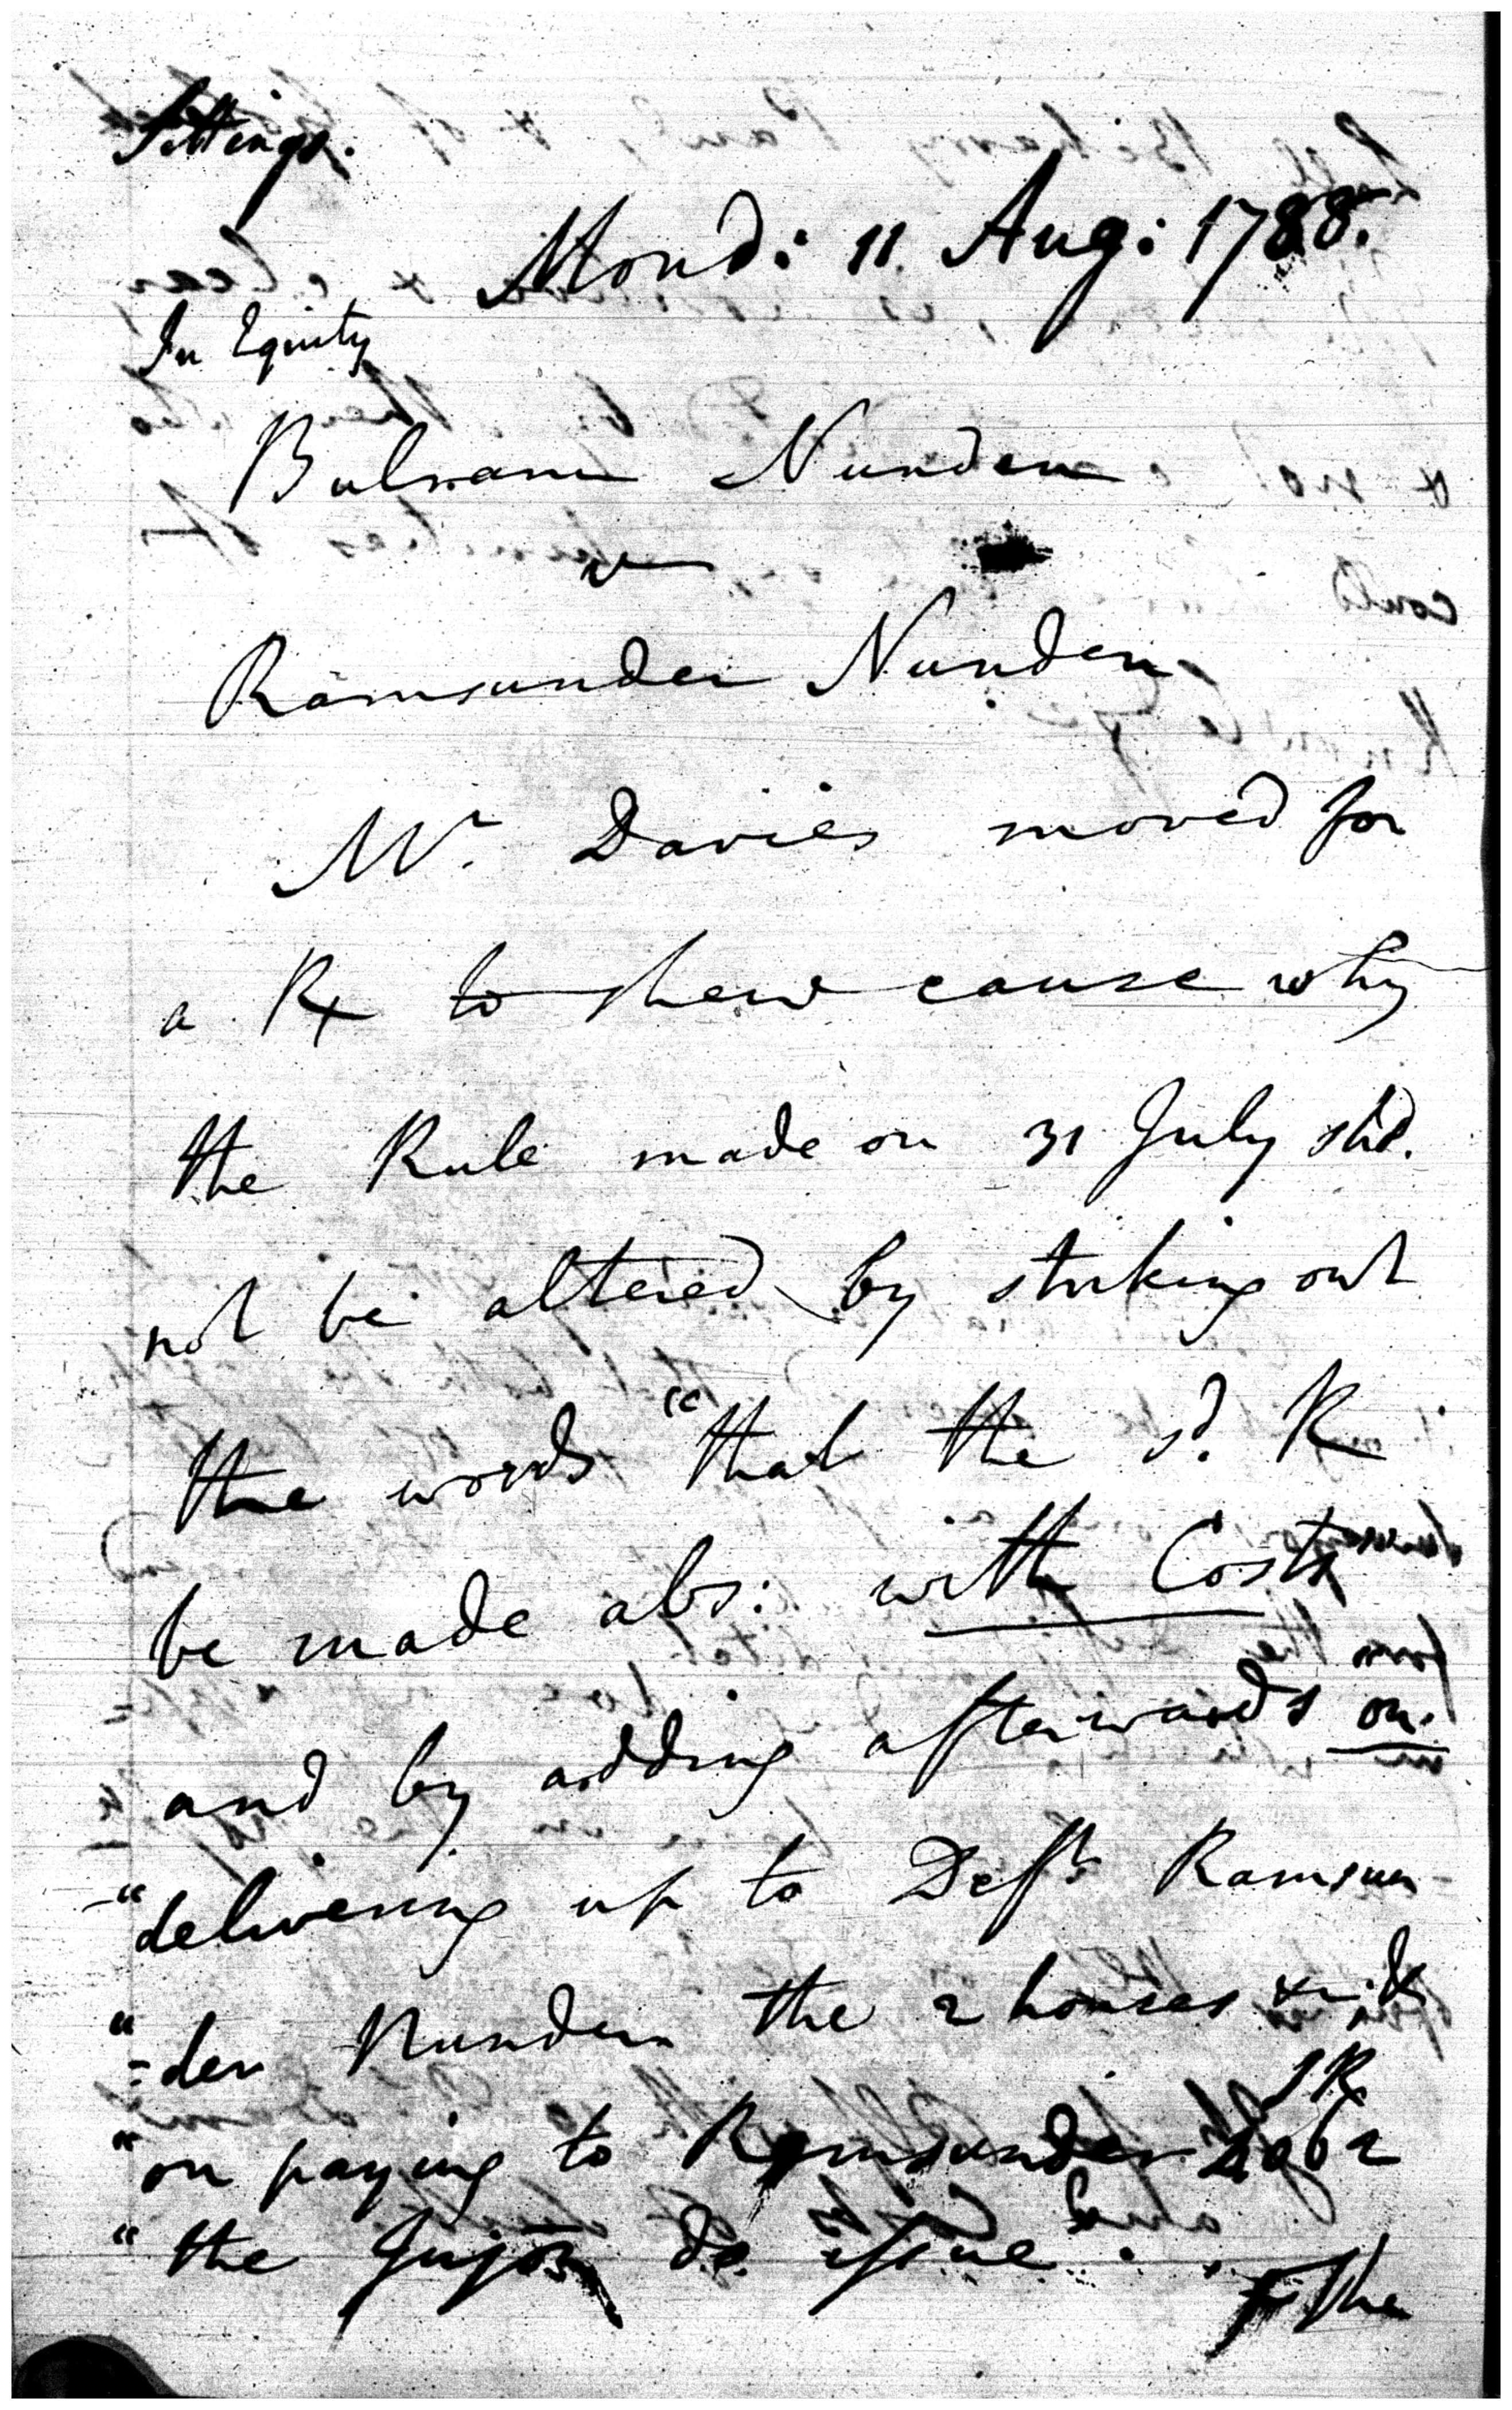 Sittings.
Mond: 11 Aug: 1788.
In Equity
Bulram Nunden
v
Ramsunder Nunden
Mr. Davies moved for
a Rx to shew cause why
the Rule made on 31 July shd.
not be altered by striking out
the words "that the sd. R
be made abs: with Costs
and by adding afterwards on
"delivering up to Deft. Ramsun
"=der Nunden the 2 houses &c. &
SR.
"on paying to Ramsunder 4062
"the Injon do issue .
The